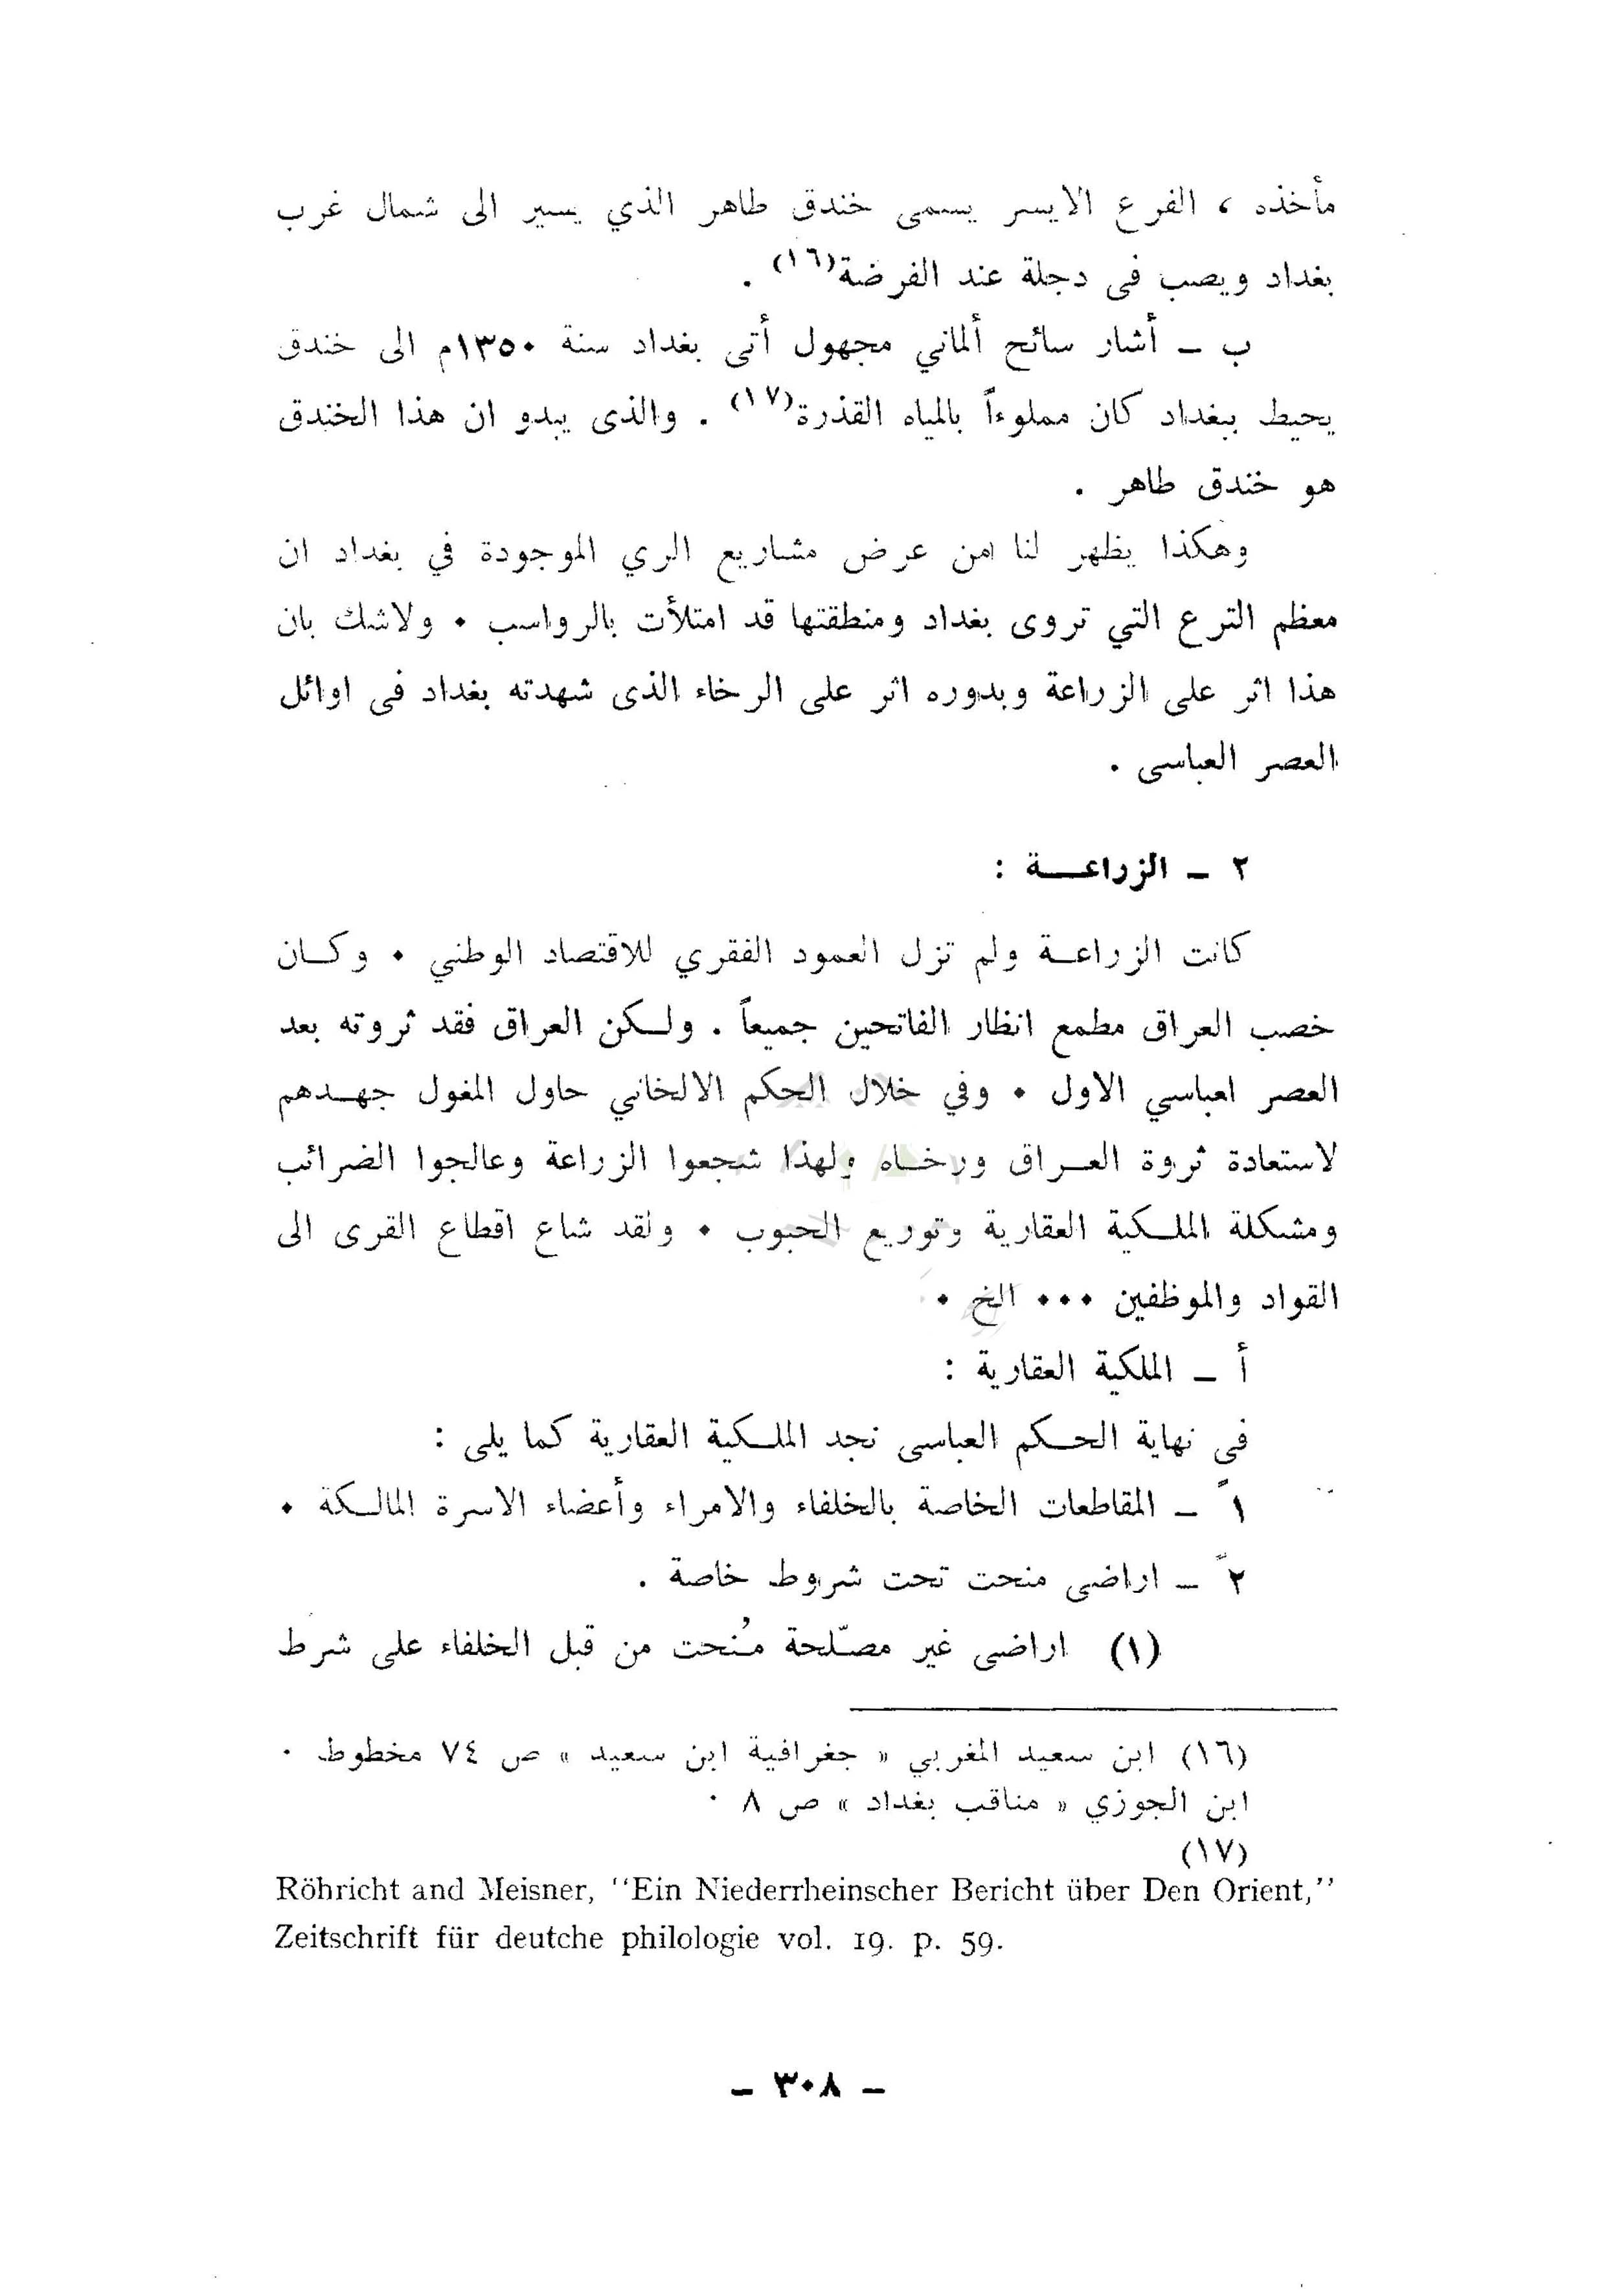 مأخذه ، الفرع الايسر يسمى خندق طاهر الذي يسير الى شمال غرب
بغداد ويصب فى دجلة عند الفرضة(١٦) .
ب ــ أشار سائح ألماني مجهول أتى بغداد سنة ١٣٥٠م الى خندق
يحيط ببغداد كان مملوءاً بالمياه القذرة(١٧) . والذى يبدو ان هذا الخندق
هو خندق طاهر .
وهكذا يظهر لنا من عرض مشاريع الري الموجودة في بغداد ان
معظم الترع التي تروى بغداد ومنطقتها قد امتلأت بالرواسب . ولاشك بان
هذا اثر على الزراعة وبدوره اثر على الرخاء الذى شهدته بغداد فى اوائل
العصر العباسى .
٢ ــ الزراعـــة :
كانت الزراعـة ولم تزل العمود الفقري للاقتصاد الوطني . وكـان
خصب العراق مطمع انظار الفاتحين جميعاً . ولـكن العراق فقد ثروته بعد
العصر لعباسي الاول . وفي خلال الحكم الالخاني حاول المغول جهـدهم
لاستعادة ثروة العـراق ورخـاه ولهذا شجعوا الزراعة وعالجوا الضرائب
ومشكلة الملـكية العقارية وتوريع الحبوب . ولقد شاع اقطاع القرى الى
القواد والموظفين ... الخ .
أ ــ الملكية العقارية :
فى نهاية الحـكم العباسى نجد الملـكية العقارية كما يلى :
١ً ــ المقاطعات الخاصة بالخلفاء والامراء وأعضاء الاسرة المالـكة .
٢ً ــ اراضى منحت تحت شروط خاصة .
(١) اراضى غير مصّلحة مُنحت من قبل الخلفاء على شرط
(١٦) ابن سعيد المغربي « جغرافية ابن سعيد » ص ٧٤ مخطوط .
ابن الجوزي « مناقب بغداد » ص ٨ .
(١٧)
Röhricht and Meisner, "Ein Niederrheinscher Bericht über Den Orient,"
Zeitschrift für deutche philologie vol. 19. p. 59.
ــ ٣٠٨ ــ